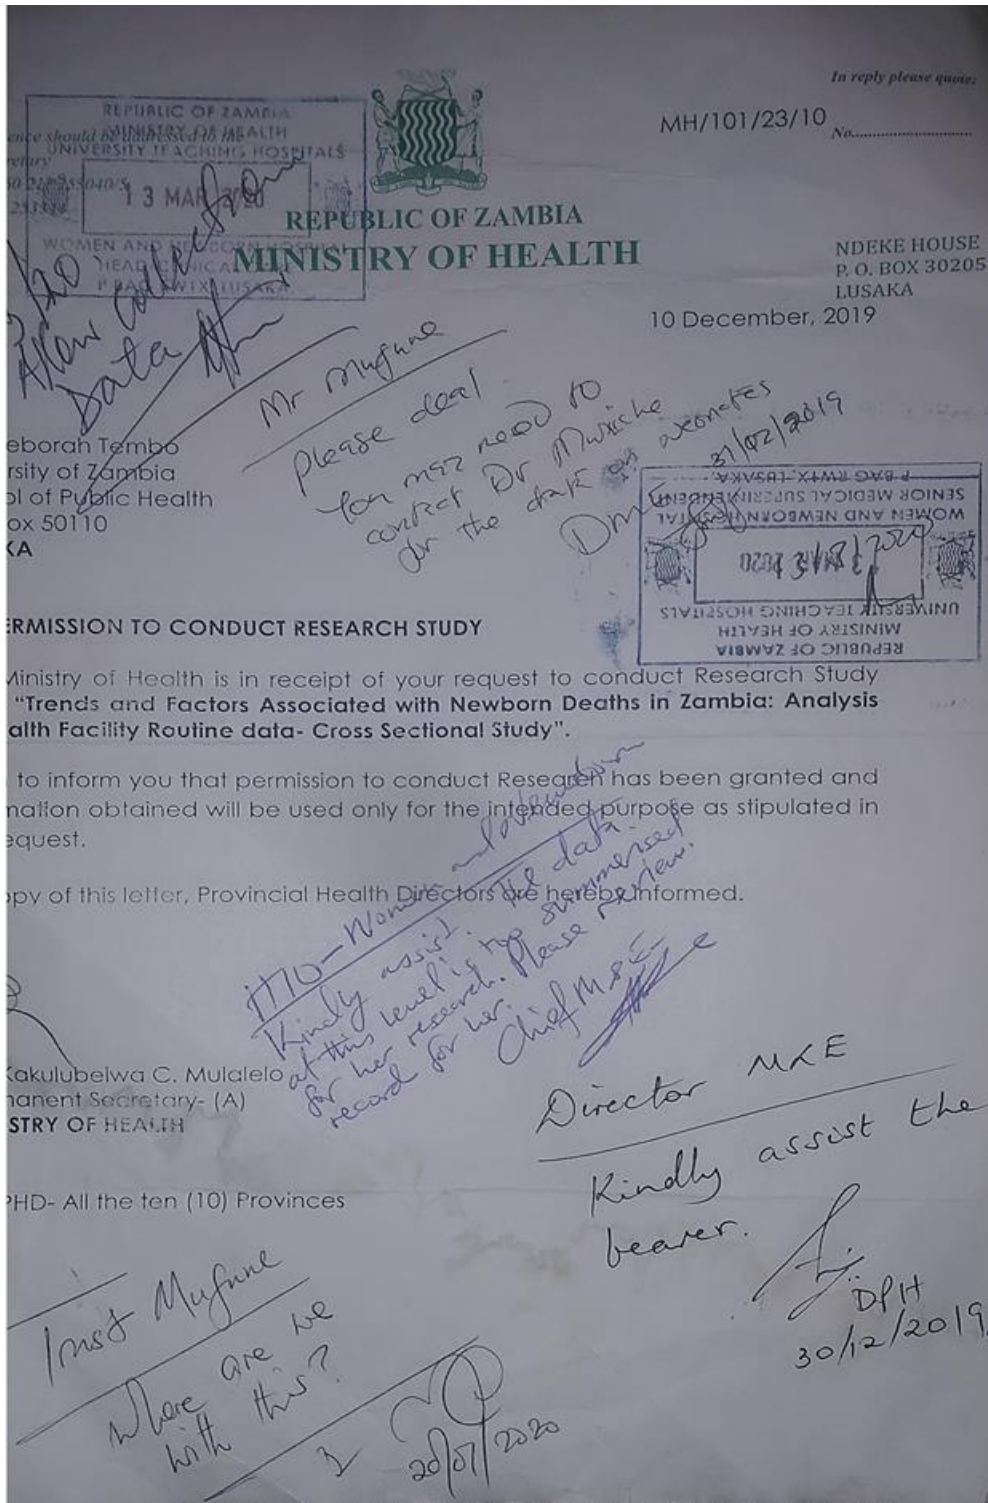 In reply please quote:
MH/101/23/10
No.
ence should be addressed to the
retary
REPUBLIC OF ZAMBIA
MINISTRY OF HEALTH
UNIVERSITY TEACHING HOSPITALS
13 MAR 2020
WOMEN AND NEWBORN HOSPITAL
P BAG RW1X, LUSAKA.
REPUBLIC OF ZAMBIA
MINISTRY OF HEALTH
NDEKE HOUSE
P. O. BOX 30205
LUSAKA
10 December, 2019
Allow collection
Data
Mr Mufune
Please deal
You may need to
contact Dr Mwiche
for the data on neonates
31/02/2019
eborah Tembo
rsity of Zambia
ol of Public Health
ox 50110
KA
REPUBLIC OF ZAMBIA
MINISTRY OF HEALTH
UNIVERSITY TEACHING HOSPITALS
MAR 2020
WOMEN AND NEWBORN HOSPITAL
SENIOR MEDICAL SUPERINTENDENT
P BAG RW1X, LUSAKA.
ERMISSION TO CONDUCT RESEARCH STUDY
Ministry of Health is in receipt of your request to conduct Research Study
"Trends and Factors Associated with Newborn Deaths in Zambia: Analysis
alth Facility Routine data- Cross Sectional Study".
to inform you that permission to conduct Research has been granted and
mation obtained will be used only for the intended purpose as stipulated in
equest.
opy of this letter, Provincial Health Directors are hereby informed.
HIO-Women and Newborn
Kindly assist. The data
at this level is too summerised
for her research. Please review
record for her.
Chief M&E
Kakulubelwa C. Mulalelo
manent Secretary- (A)
STRY OF HEALTH
PHD- All the ten (10) Provinces
Director M&E
Kindly assist the
bearer.
DPH
30/12/2019
Mufune
where are we
with this?
20/01/2020